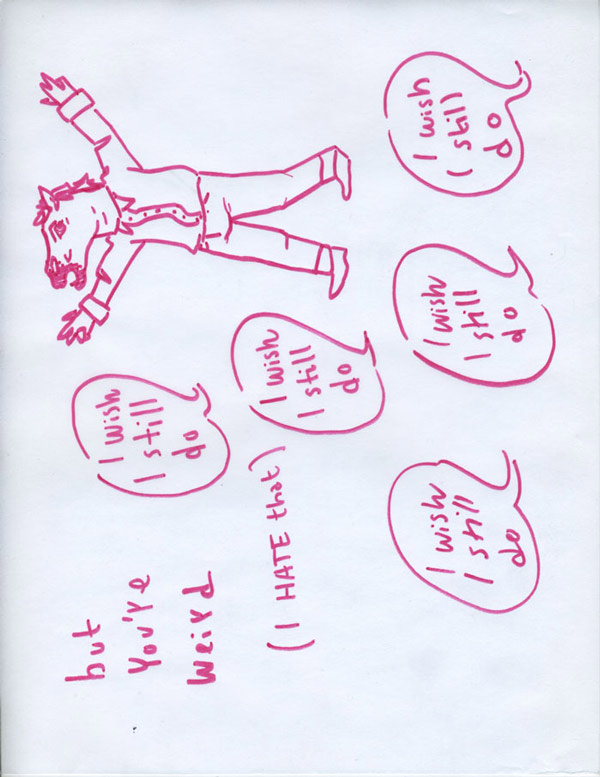 but
you're
weird
(I HATE that)
I wish
I still
do
I wish
I still
do
I wish
I still
do
I wish
I still
do
I wish
I still
do